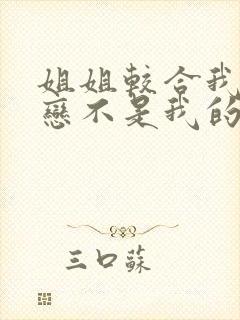 姐姐較合我
戀不是我的
三口蘇